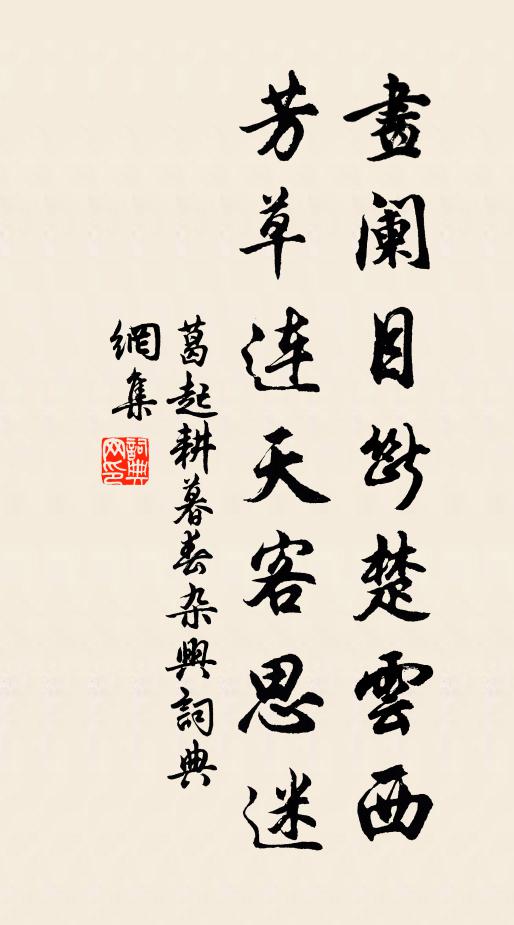 畫闌目斷楚雲西
芳草連天客思迷
葛起耕暮春杂興詞典
網集
詞典
网印